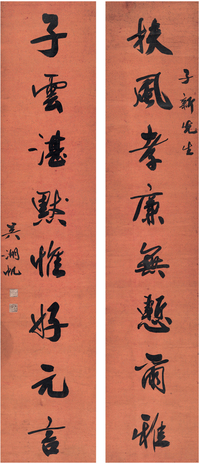 扶風孝廉無慙爾雅
子新先生
子雲湛默惟好元言
吳湖帆